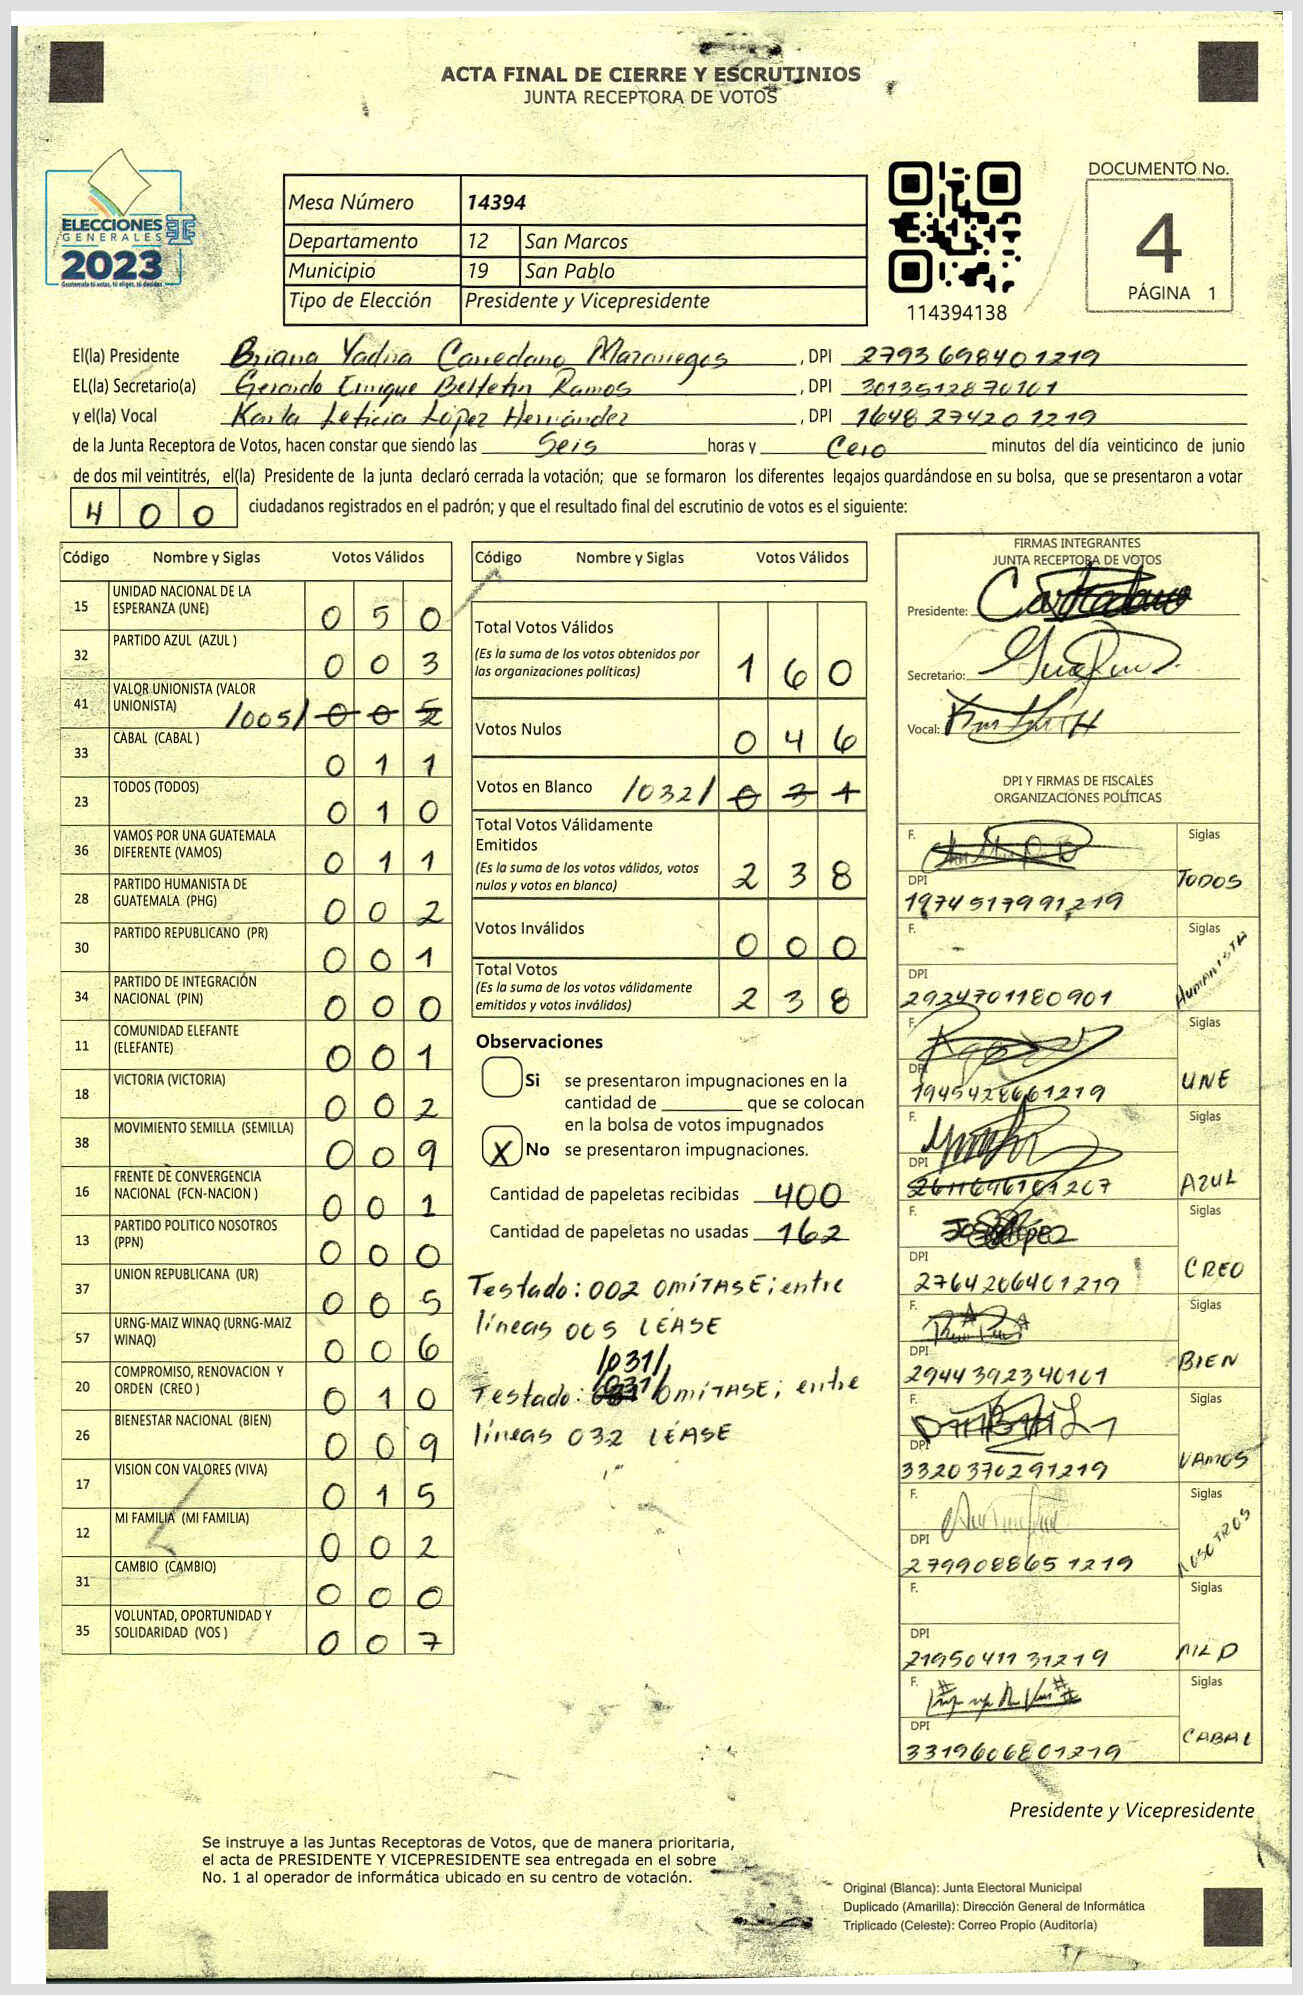 ACTA FINAL DE CIERRE Y ESCRUTINIOS
JUNTA RECEPTORA DE VOTOS
ELECCIONES
GENERALES
2023
Guatemala tú votas, tú eliges, tú decides
Mesa Número 14394
Departamento 12 San Marcos
Municipio 19 San Pablo
Tipo de Elección Presidente y Vicepresidente
114394138
DOCUMENTO No.
4
PÁGINA 1
El(la) Presidente Briana Yadira Carredano Mazariegos , DPI 2793698401219
EL(la) Secretario(a) Gerardo Enrique Beltetón Ramos , DPI 3013512870101
y el(la) Vocal Karla Leticia López Hernández , DPI 1648274201219
de la Junta Receptora de Votos, hacen constar que siendo las Seis horas y Cero minutos del día veinticinco de junio
de dos mil veintitrés, el(la) Presidente de la junta declaró cerrada la votación; que se formaron los diferentes legajos guardándose en su bolsa, que se presentaron a votar
400 ciudadanos registrados en el padrón; y que el resultado final del escrutinio de votos es el siguiente:
Código Nombre y Siglas Votos Válidos
15 UNIDAD NACIONAL DE LA ESPERANZA (UNE) 050
32 PARTIDO AZUL (AZUL ) 003
41 VALOR UNIONISTA (VALOR UNIONISTA) /005/ 002
33 CABAL (CABAL ) 011
23 TODOS (TODOS) 010
36 VAMOS POR UNA GUATEMALA DIFERENTE (VAMOS) 011
28 PARTIDO HUMANISTA DE GUATEMALA (PHG) 002
30 PARTIDO REPUBLICANO (PR) 001
34 PARTIDO DE INTEGRACIÓN NACIONAL (PIN) 000
11 COMUNIDAD ELEFANTE (ELEFANTE) 001
18 VICTORIA (VICTORIA) 002
38 MOVIMIENTO SEMILLA (SEMILLA) 009
16 FRENTE DE CONVERGENCIA NACIONAL (FCN-NACION ) 001
13 PARTIDO POLITICO NOSOTROS (PPN) 000
37 UNION REPUBLICANA (UR) 005
57 URNG-MAIZ WINAQ (URNG-MAIZ WINAQ) 006
20 COMPROMISO, RENOVACION Y ORDEN (CREO ) 010
26 BIENESTAR NACIONAL (BIEN) 009
17 VISION CON VALORES (VIVA) 015
12 MI FAMILIA (MI FAMILIA) 002
31 CAMBIO (CAMBIO) 000
35 VOLUNTAD, OPORTUNIDAD Y SOLIDARIDAD (VOS ) 007
Código Nombre y Siglas Votos Válidos
Total Votos Válidos 160
(Es la suma de los votos obtenidos por
las organizaciones políticas)
Votos Nulos 046
Votos en Blanco /032/ 031
Total Votos Válidamente
Emitidos
(Es la suma de los votos válidos, votos
nulos y votos en blanco) 238
Votos Inválidos 000
Total Votos
(Es la suma de los votos válidamente
emitidos y votos inválidos) 238
Observaciones
Si se presentaron impugnaciones en la
cantidad de ________ que se colocan
en la bolsa de votos impugnados
X No se presentaron impugnaciones.
Cantidad de papeletas recibidas 400
Cantidad de papeletas no usadas 162
Testado: 002 OMÍTASE; entre
líneas 005 LÉASE
/031/
Testado: 031/ OMÍTASE; entre
líneas 032 LÉASE
FIRMAS INTEGRANTES
JUNTA RECEPTORA DE VOTOS
Presidente:
Secretario:
Vocal:
DPI Y FIRMAS DE FISCALES
ORGANIZACIONES POLÍTICAS
F. Siglas
DPI TODOS
1974517991219
F. Siglas
DPI HUMANISTA
2924701180901
F. Siglas
DPI UNE
1945428661219
F. Siglas
DPI AZUL
2611696161207
F. Siglas
DPI CREO
2764206401219
F. Siglas
DPI BIEN
2944392340101
F. Siglas
DPI VAMOS
3320370291219
F. Siglas
DPI NOSOTROS
2799088651219
F. Siglas
DPI
2195041131219
F. Siglas
DPI CABAL
3319606801219
Presidente y Vicepresidente
Se instruye a las Juntas Receptoras de Votos, que de manera prioritaria,
el acta de PRESIDENTE Y VICEPRESIDENTE sea entregada en el sobre
No. 1 al operador de informática ubicado en su centro de votación.
Original (Blanca): Junta Electoral Municipal
Duplicado (Amarilla): Dirección General de Informática
Triplicado (Celeste): Correo Propio (Auditoría)